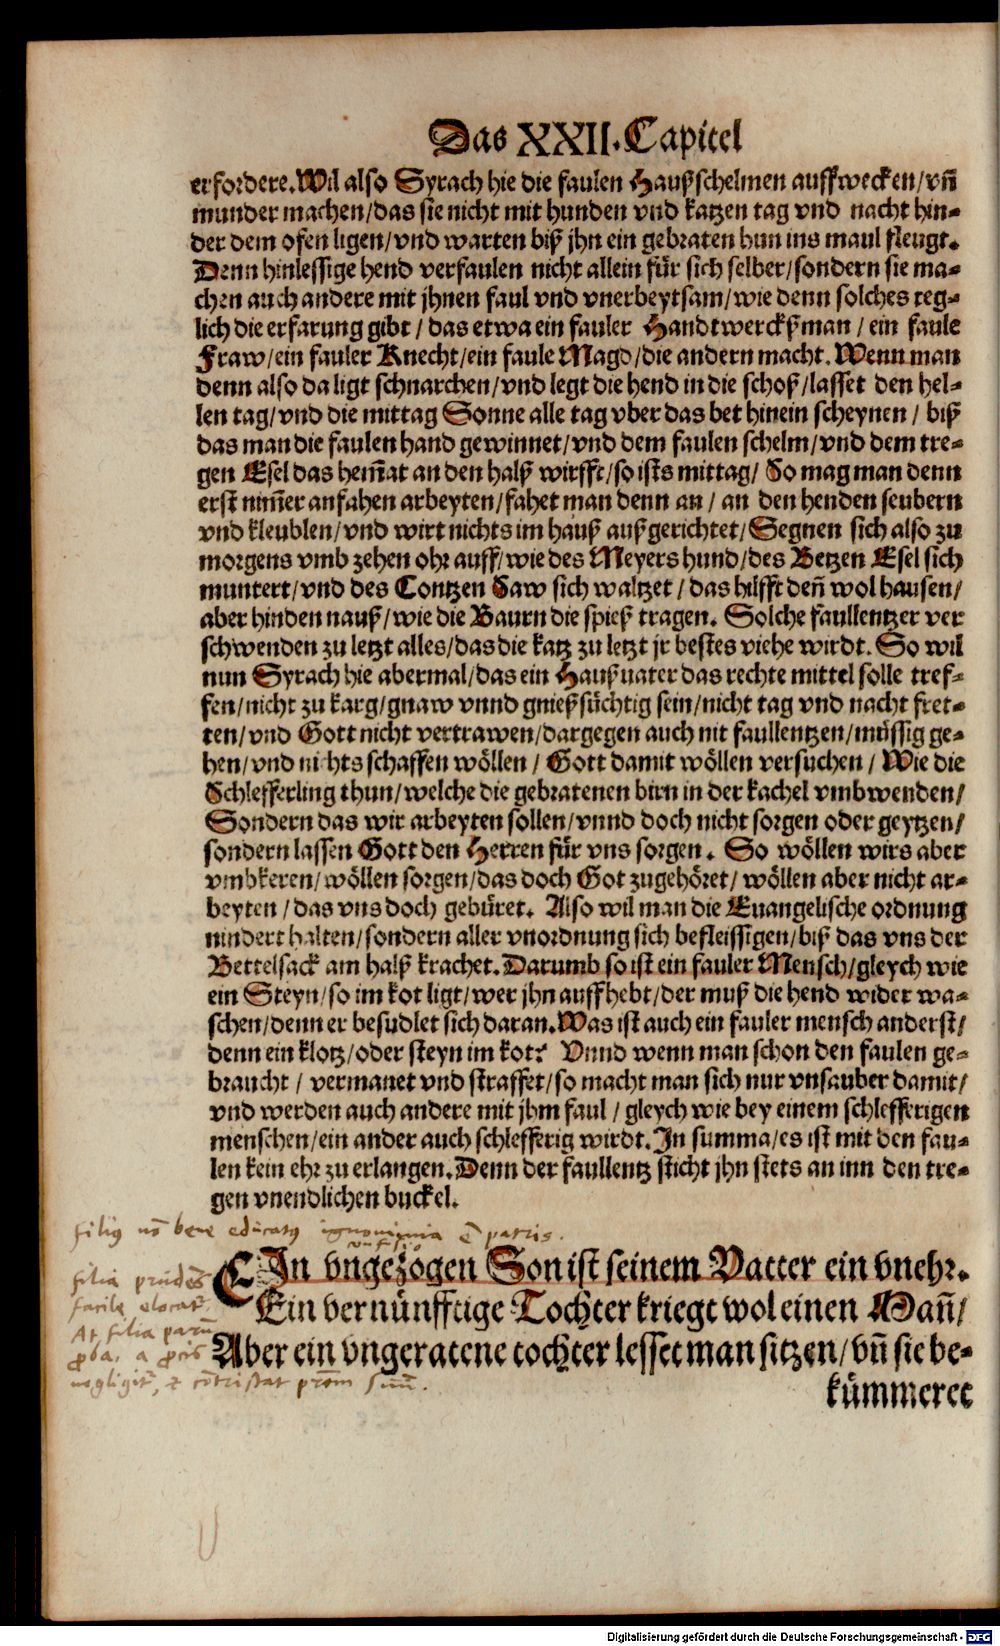 Das XXII. Capitel
erfordere. Wil also Syrach hie die faulen Haußschelmen auffwecken/vñ
munder machen/das sie nicht mit hunden vnd katzen tag vnd nacht hin-
der dem ofen ligen/vnd warten biß jhn ein gebraten hun ins maul fleugt.
Denn hinlessige hend verfaulen nicht allein für sich selber/sondern sie ma-
chen auch andere mit jhnen faul vnd vnerbeytsam/wie denn solches teg-
lich die erfarung gibt / das etwa ein fauler Handtwercksman / ein faule
Fraw/ein fauler Knecht/ein faule Magd/die andern macht. Wenn man
denn also da ligt schnarchen/vnd legt die hend in die schoß/lasset den hel-
len tag/vnd die mittag Sonne alle tag vber das bet hinein scheynen / biß
das man die faulen hand gewinnet/vnd dem faulen schelm/vnd dem tre-
gen Esel das hem̃at an den halß wirfft/so ists mittag/ So mag man denn
erst nim̃er anfahen arbeyten/fahet man denn an / an den henden seubern
vnd kleublen/vnd wirt nichts im hauß außgerichtet/Segnen sich also zu
morgens vmb zehen ohr auff/wie des Meyers hund/des Betzen Esel sich
muntert/vnd des Contzen Saw sich waltzet / das hilfft deñ wol hausen/
aber hinden nauß/wie die Baurn die spieß tragen. Solche faullentzer ver
schwenden zu letzt alles/das die katz zu letzt jr bestes viehe wirdt. So wil
nun Syrach hie abermal/das ein Haußuater das rechte mittel solle tref-
fen/nicht zu karg/gnaw vnnd gnießsüchtig sein/nicht tag vnd nacht fret-
ten/vnd Gott nicht vertrawen/dargegen auch nit faullentzen/müssig ge-
hen/vnd nichts schaffen wöllen / Gott damit wöllen versuchen / Wie die
Schlefferling thun/welche die gebratenen birn in der kachel vmbwenden/
Sondern das wir arbeyten sollen/vnnd doch nicht sorgen oder geytzen/
sondern lassen Gott den Herren für vns sorgen. So wöllen wirs aber
vmbkeren/wöllen sorgen/das doch Got zugehöret/ wöllen aber nicht ar-
beyten / das vns doch gebüret. Also wil man die Euangelische ordnung
nindert halten/sondern aller vnordnung sich befleissigen/biß das vns der
Bettelsack am halß krachet. Darumb so ist ein fauler Mensch/gleych wie
ein Steyn/so im kot ligt/wer jhn auffhebt/der muß die hend wider wa-
schen/denn er besudlet sich daran. Was ist auch ein fauler mensch anderst/
denn ein klotz/oder steyn im kot? Vnnd wenn man schon den faulen ge-
braucht / vermanet vnd straffet/so macht man sich nur vnsauber damit/
vnd werden auch andere mit jhm faul / gleych wie bey einem schlefferigen
menschen/ein ander auch schlefferig wirdt. In summa/es ist mit den fau-
len kein ehr zu erlangen. Denn der faullentz sticht jhn stets an inn den tre-
gen vnendlichen buckel.
filius nō bene educatus ignominia ē patris.
EIn vngezogen Son ist seinem Vatter ein vnehr.
Ein vernünfftige Tochter kriegt wol einen Mañ/
Aber ein vngeratene tochter lesset man sitzen/vñ sie be-
kümmeret
filia prudēs
facile elocat~.
At filia parū
ꝓba, a ꝓcis
negligit~, & cōtristat prēm suū.
Digitalisierung gefördert durch die Deutsche Forschungsgemeinschaft - DFG